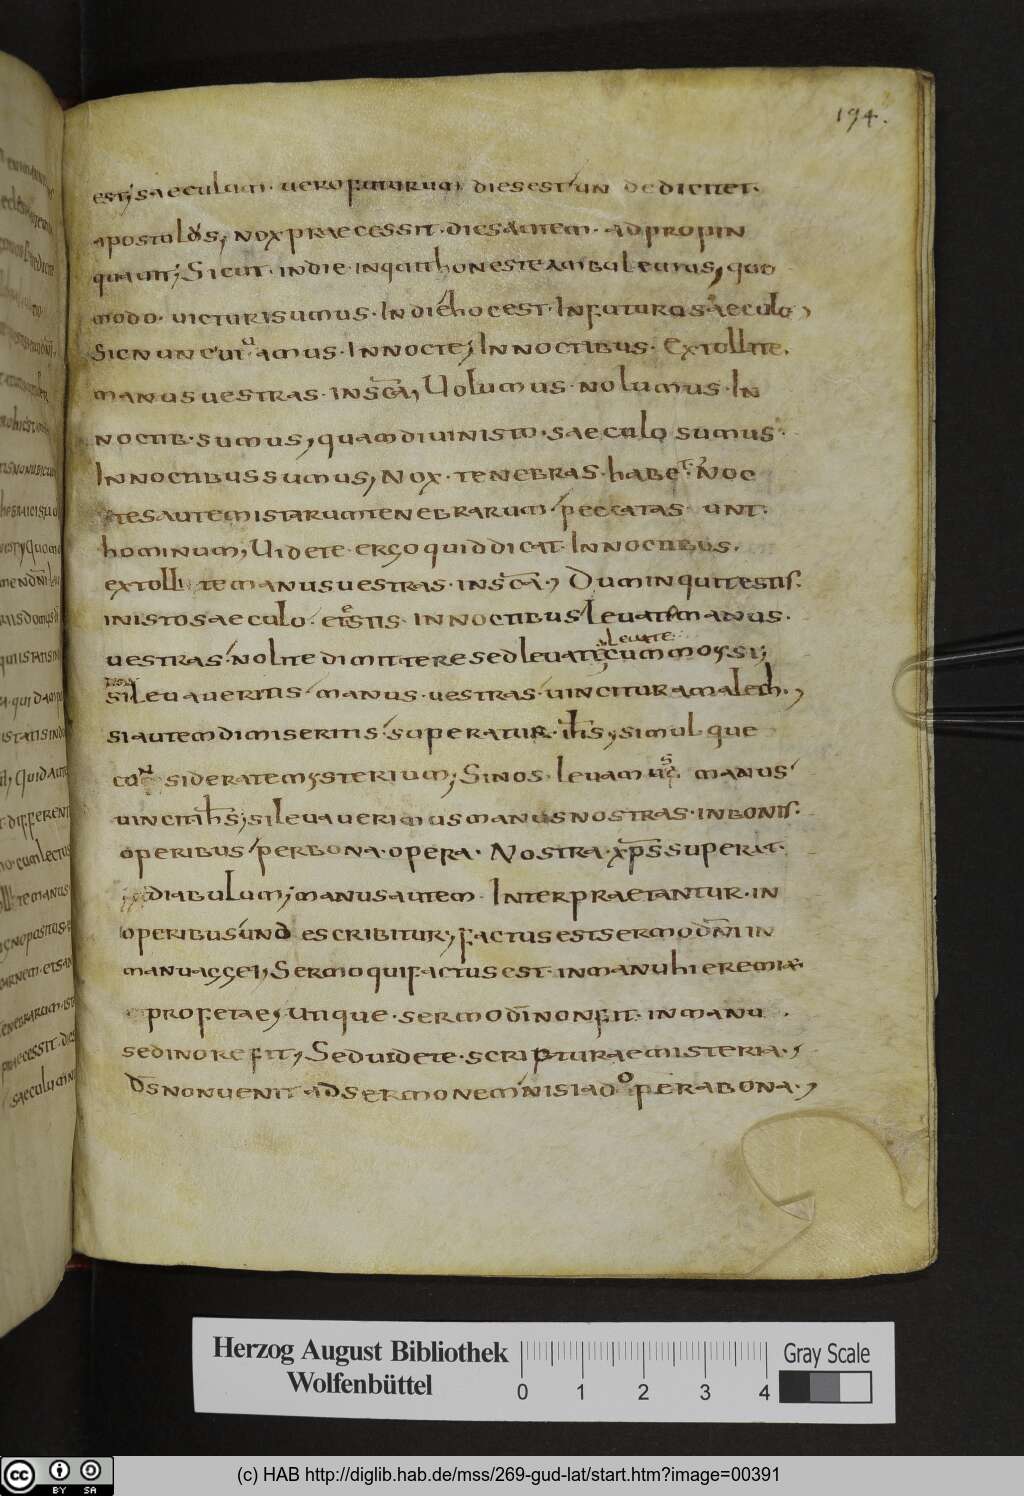 194.
est; saeculum · uero futurum dies est un de dicit et·
apostolus, nox praecessit · dies autem · adpropin
quauit; Sicut · in die · inquit honeste ambulemus, quo
modo · uicturi sumus · In die hoc est · In futuro saeculo,
Sic nunc uiuamus · In nocte; In noctibus · Extollite.
manus uestras · in sc̄a, Uolumus · nolumus · In
noctib· sumus, quamdiu in isto · saeculo sumus·
In noctibus sumus, Nox · tenebras · habet· Noc
tes autem istarum tenebrarum peccata s unt·
hominum, Uidete ergo quid dicat · In noctibus.
extolli te manus uestras · in sc̄a·, Dum inqu it estis.
in isto saeculo · et estis in noctibus leuate manus.
leuate
uestras nolite dimittere sed leuate cum moysi;
si leuaueritis manus · uestras · uincitur amalech.,
si autem dimiseritis superatur · ih̄s, simulque
con siderate mysterium, Si nos leuamus manus
uincit ih̄s; si leuauerimus manus nostras · in bonis.
operibus per bona · opera · Nostra · xp̄s superat·
diabulum; manus autem Interpraetantur · in
operibus und e scribitur, factus est sermo dn̄i in
manu aggei, Sermo qui factus est · in manu hieremiae
profetae, Utique · sermo dī non fit · in manu .
sed in ore fit, Sed uidete · scripturae misteria·,
Ds̄ non uenit · ad sermonem nisi ad opera bona·,
Herzog August Bibliothek
Wolfenbüttel
0 1 2 3 4
Gray Scale
cc BY SA
(c) HAB http://diglib.hab.de/mss/269-gud-lat/start.htm?image=00391